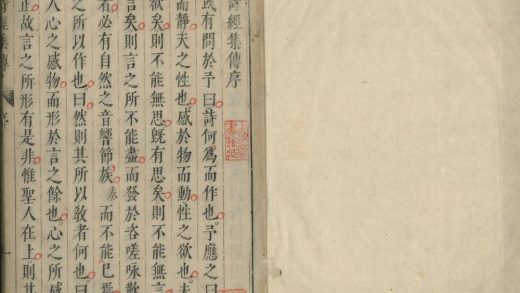 詩經集傳序
或有問於予曰詩何為而作也予應之曰
而靜天之性也感於物而動性之欲也夫
欲矣則不能無思既有思矣則不能無言
言矣則言之所不能盡而發於咨嗟咏歎
者必有自然之音響節族奏而不能已焉
之所以作也曰然則其所以敎者何也曰
人心之感物而形於言之餘也心之所感
正故言之所形有是非惟聖人在上則其
詩經集傳 序 一